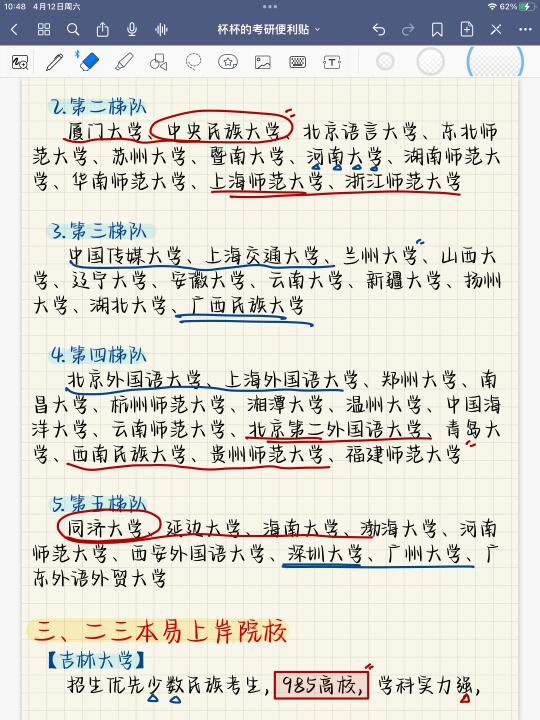 10:48 4月12日周六
62%
杯杯的考研便利贴
2.第二梯队
厦门大学、中央民族大学、北京语言大学、东北师
范大学、苏州大学、暨南大学、河南大学、湖南师范大
学、华南师范大学、上海师范大学、浙江师范大学
3.第三梯队
中国传媒大学、上海交通大学、兰州大学、山西大
学、辽宁大学、安徽大学、云南大学、新疆大学、扬州
大学、湖北大学、广西民族大学
4.第四梯队
北京外国语大学、上海外国语大学、郑州大学、南
昌大学、杭州师范大学、湘潭大学、温州大学、中国海
洋大学、云南师范大学、北京第二外国语大学、青岛大
学、西南民族大学、贵州师范大学、福建师范大学
5.第五梯队
同济大学、延边大学、海南大学、渤海大学、河南
师范大学、西安外国语大学、深圳大学、广州大学、广
东外语外贸大学
三、二三本易上岸院校
【吉林大学】
招生优先少数民族考生,985高校,学科实力强,